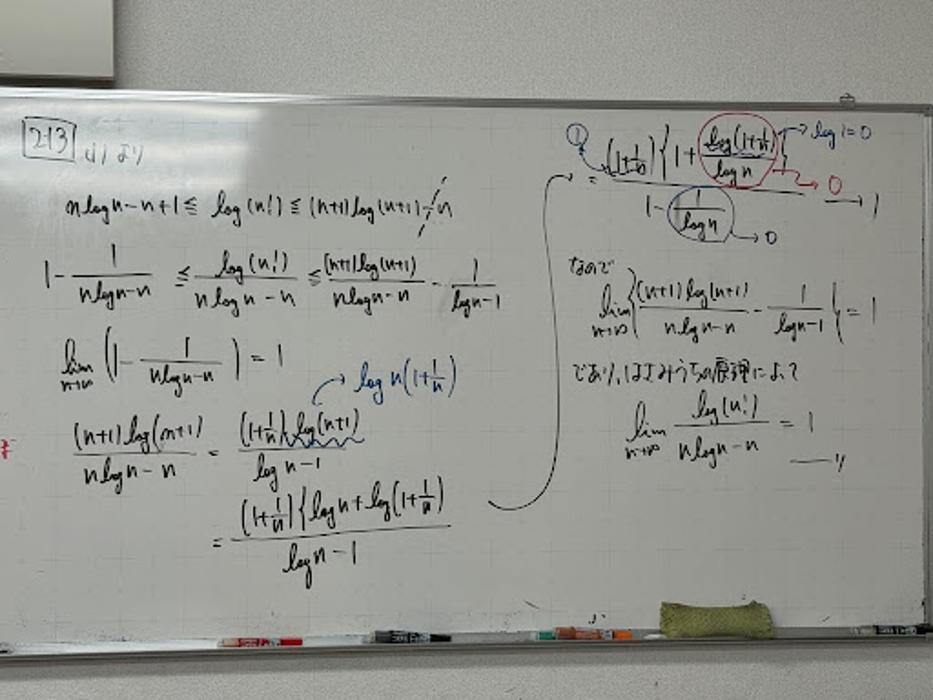 213 (1)より
n log n - n + 1 ≦ log(n!) ≦ (n+1)log(n+1) - n
1 - 1/(n log n - n) ≦ log(n!)/(n log n - n) ≦ (n+1)log(n+1)/(n log n - n) - 1/(log n - 1)
lim n→∞ (1 - 1/(n log n - n)) = 1
→ log n(1+1/n)
(n+1)log(n+1)/(n log n - n) = (1+1/n)log(n+1)/(log n - 1)
= (1+1/n){log n + log(1+1/n)/(log n - 1)
① = (1+1/n){1 + log(1+1/n)/log n}/(1 - 1/log n) → 1
→ log 1 = 0
→ 0
→ 0
なので
lim n→∞ {(n+1)log(n+1)/(n log n - n) - 1/(log n - 1)} = 1
であり,はさみうちの原理によって
lim n→∞ log(n!)/(n log n - n) = 1